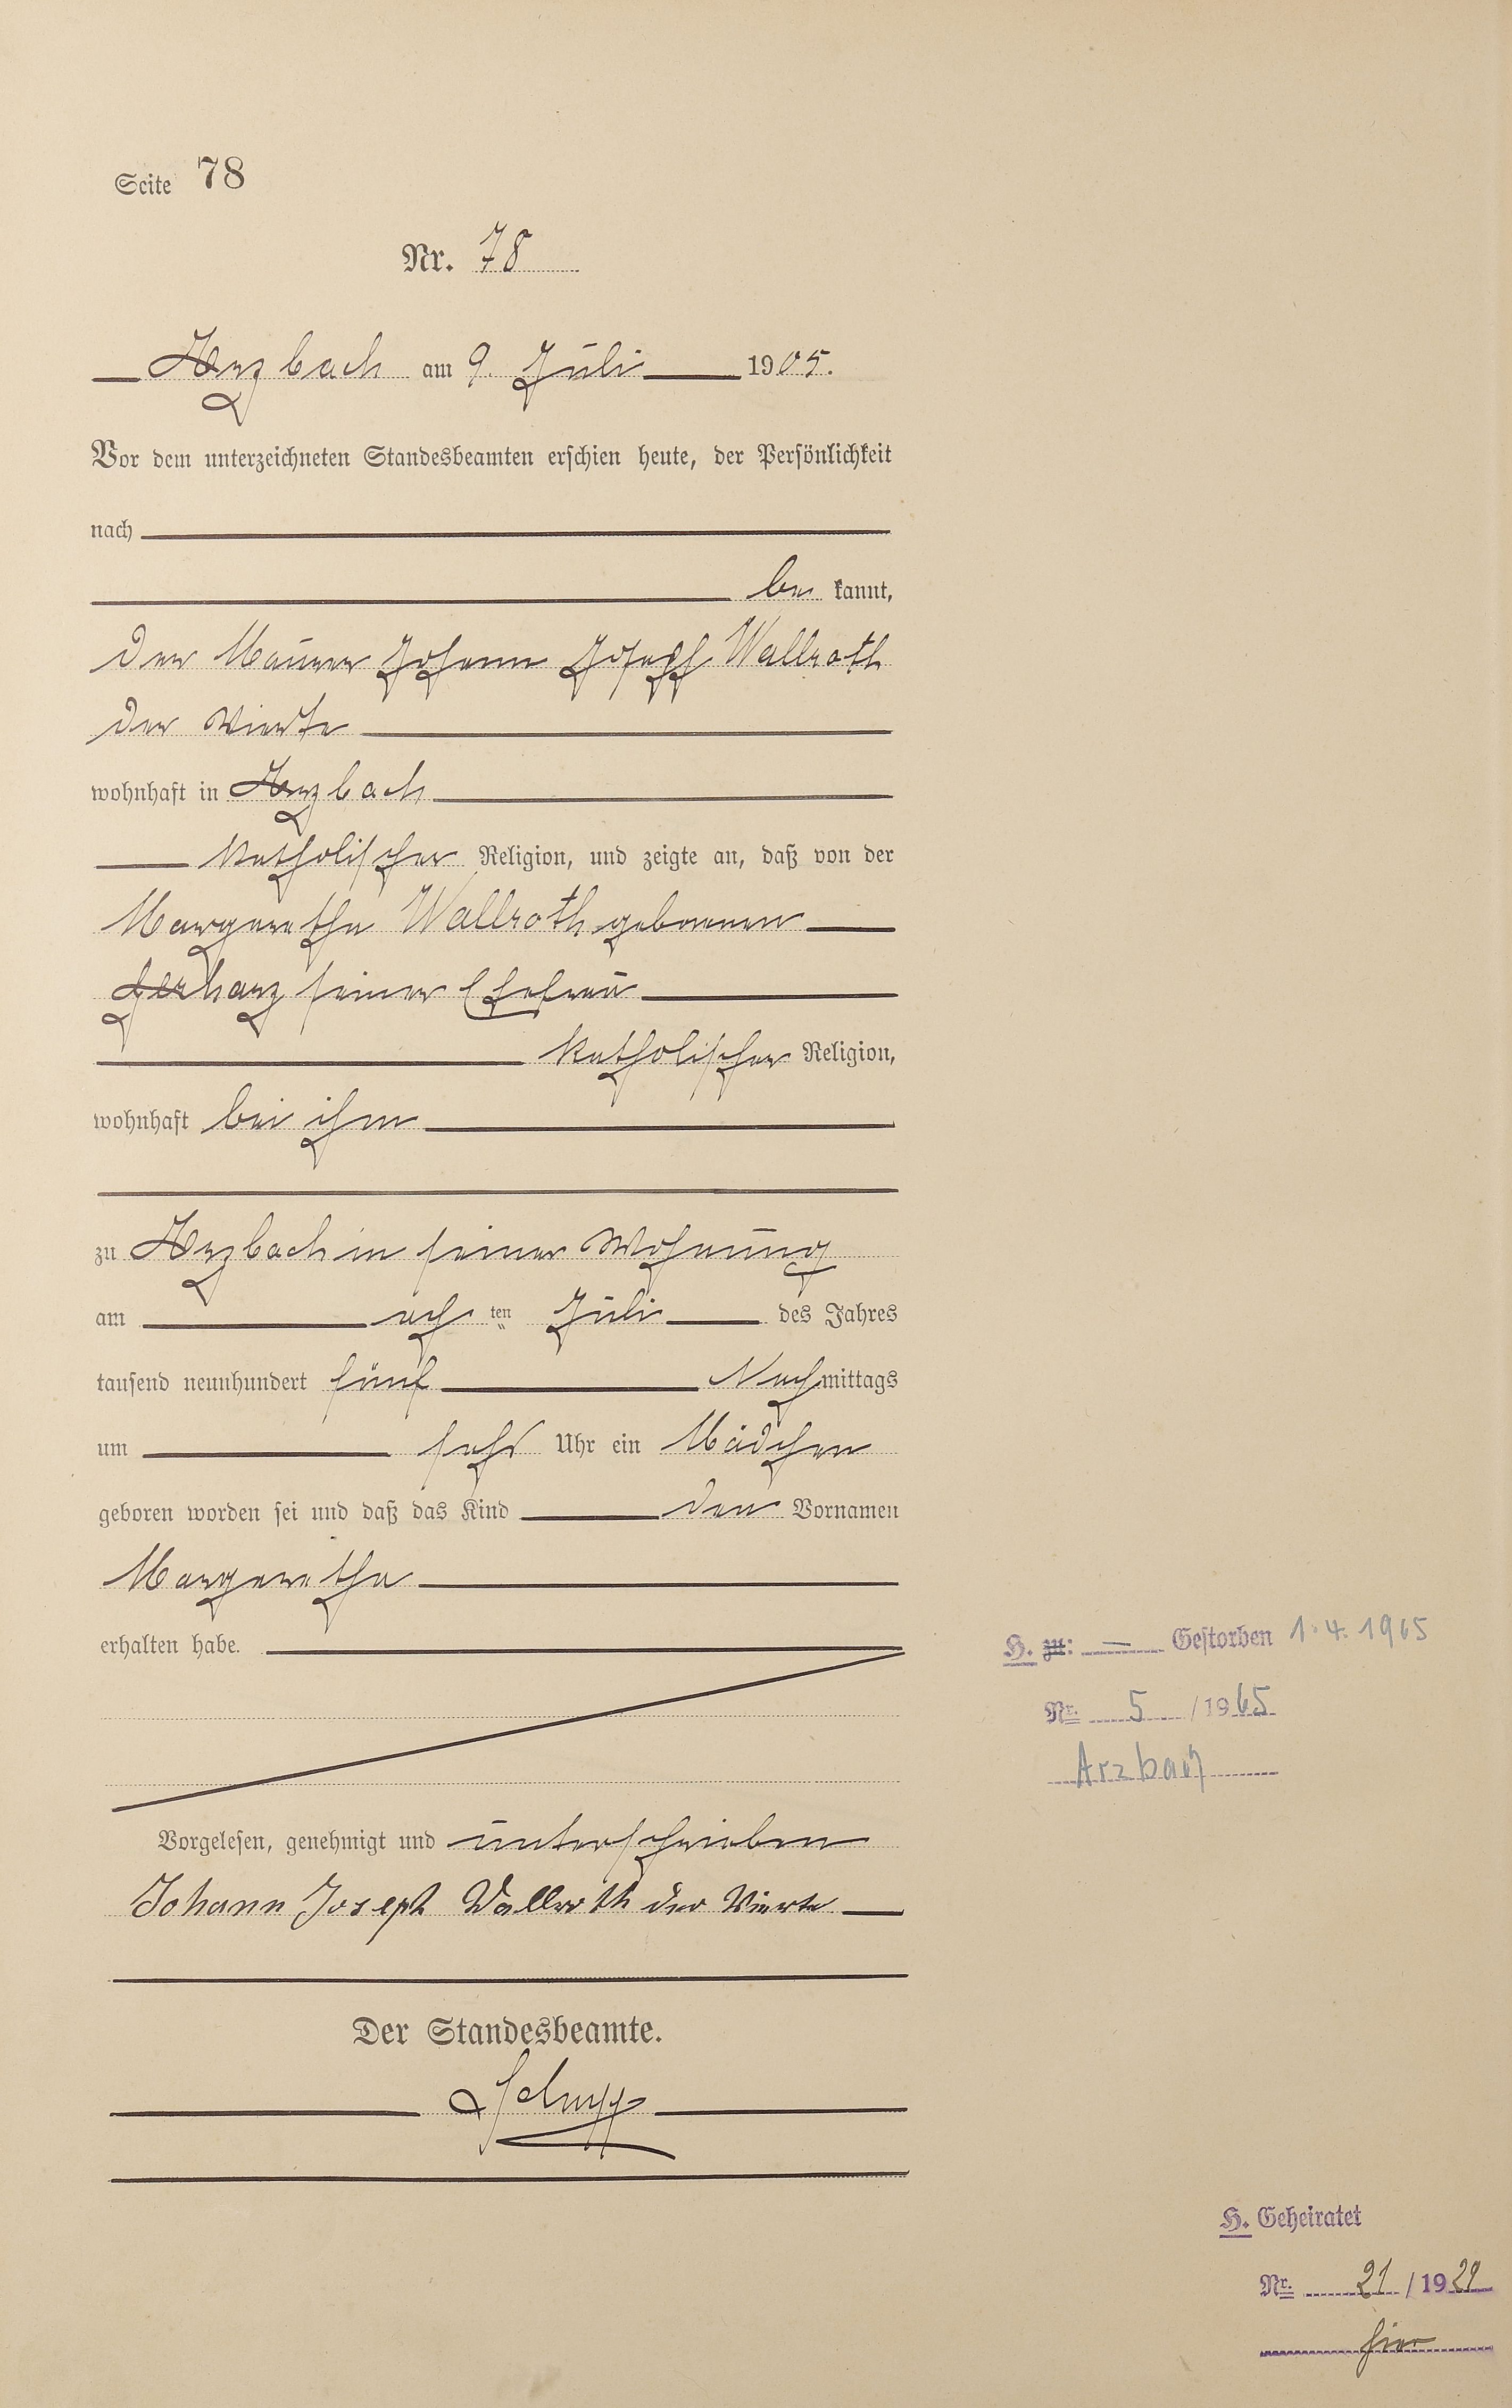 Seite 78
Nr. 78
Arzbach am 9. Juli 1905.
Vor dem unterzeichneten Standesbeamten erschien heute, der Persönlichkeit
nach
be kannt,
der Maurer Johann Joseph Wallroth
der Vierte
wohnhaft in Arzbach
katholischer Religion, und zeigte an, daß von der
Margaretha Wallroth geborenen
Gerharz seiner Ehefrau
katholischer Religion,
wohnhaft bei ihm
zu Arzbach in seiner Wohnung
am achten Juli des Jahres
tausend neunhundert fünf Nachmittags
um sechs Uhr ein Mädchen
geboren worden sei und daß das Kind den Vornamen
Margaretha
erhalten habe.
H. zu: — Gestorben 1.4.1965
Nr. 5 / 1965
Arzbach
Vorgelesen, genehmigt und unterschrieben
Johann Joseph Wallroth der Vierte
Der Standesbeamte.
H. Geheiratet
Nr. 21 / 1929
hier